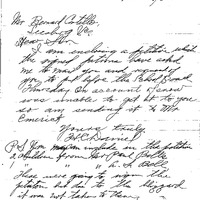 Mr Bernard Cotellis
Leesburg Va
Dear Sir
I am inclosing a petition which
the signed patrons have asked
me to mail you and request of
you to put before the School Board
Thursday On account of snow
was unable to get to you
so am sending it to Mr
Emerick
Yours truly,
Davis
P.S. You may include in the petition
2 children from Mr Paul
" " "
These were going to sign the
petition but due to the blizzard
it was not taken to them